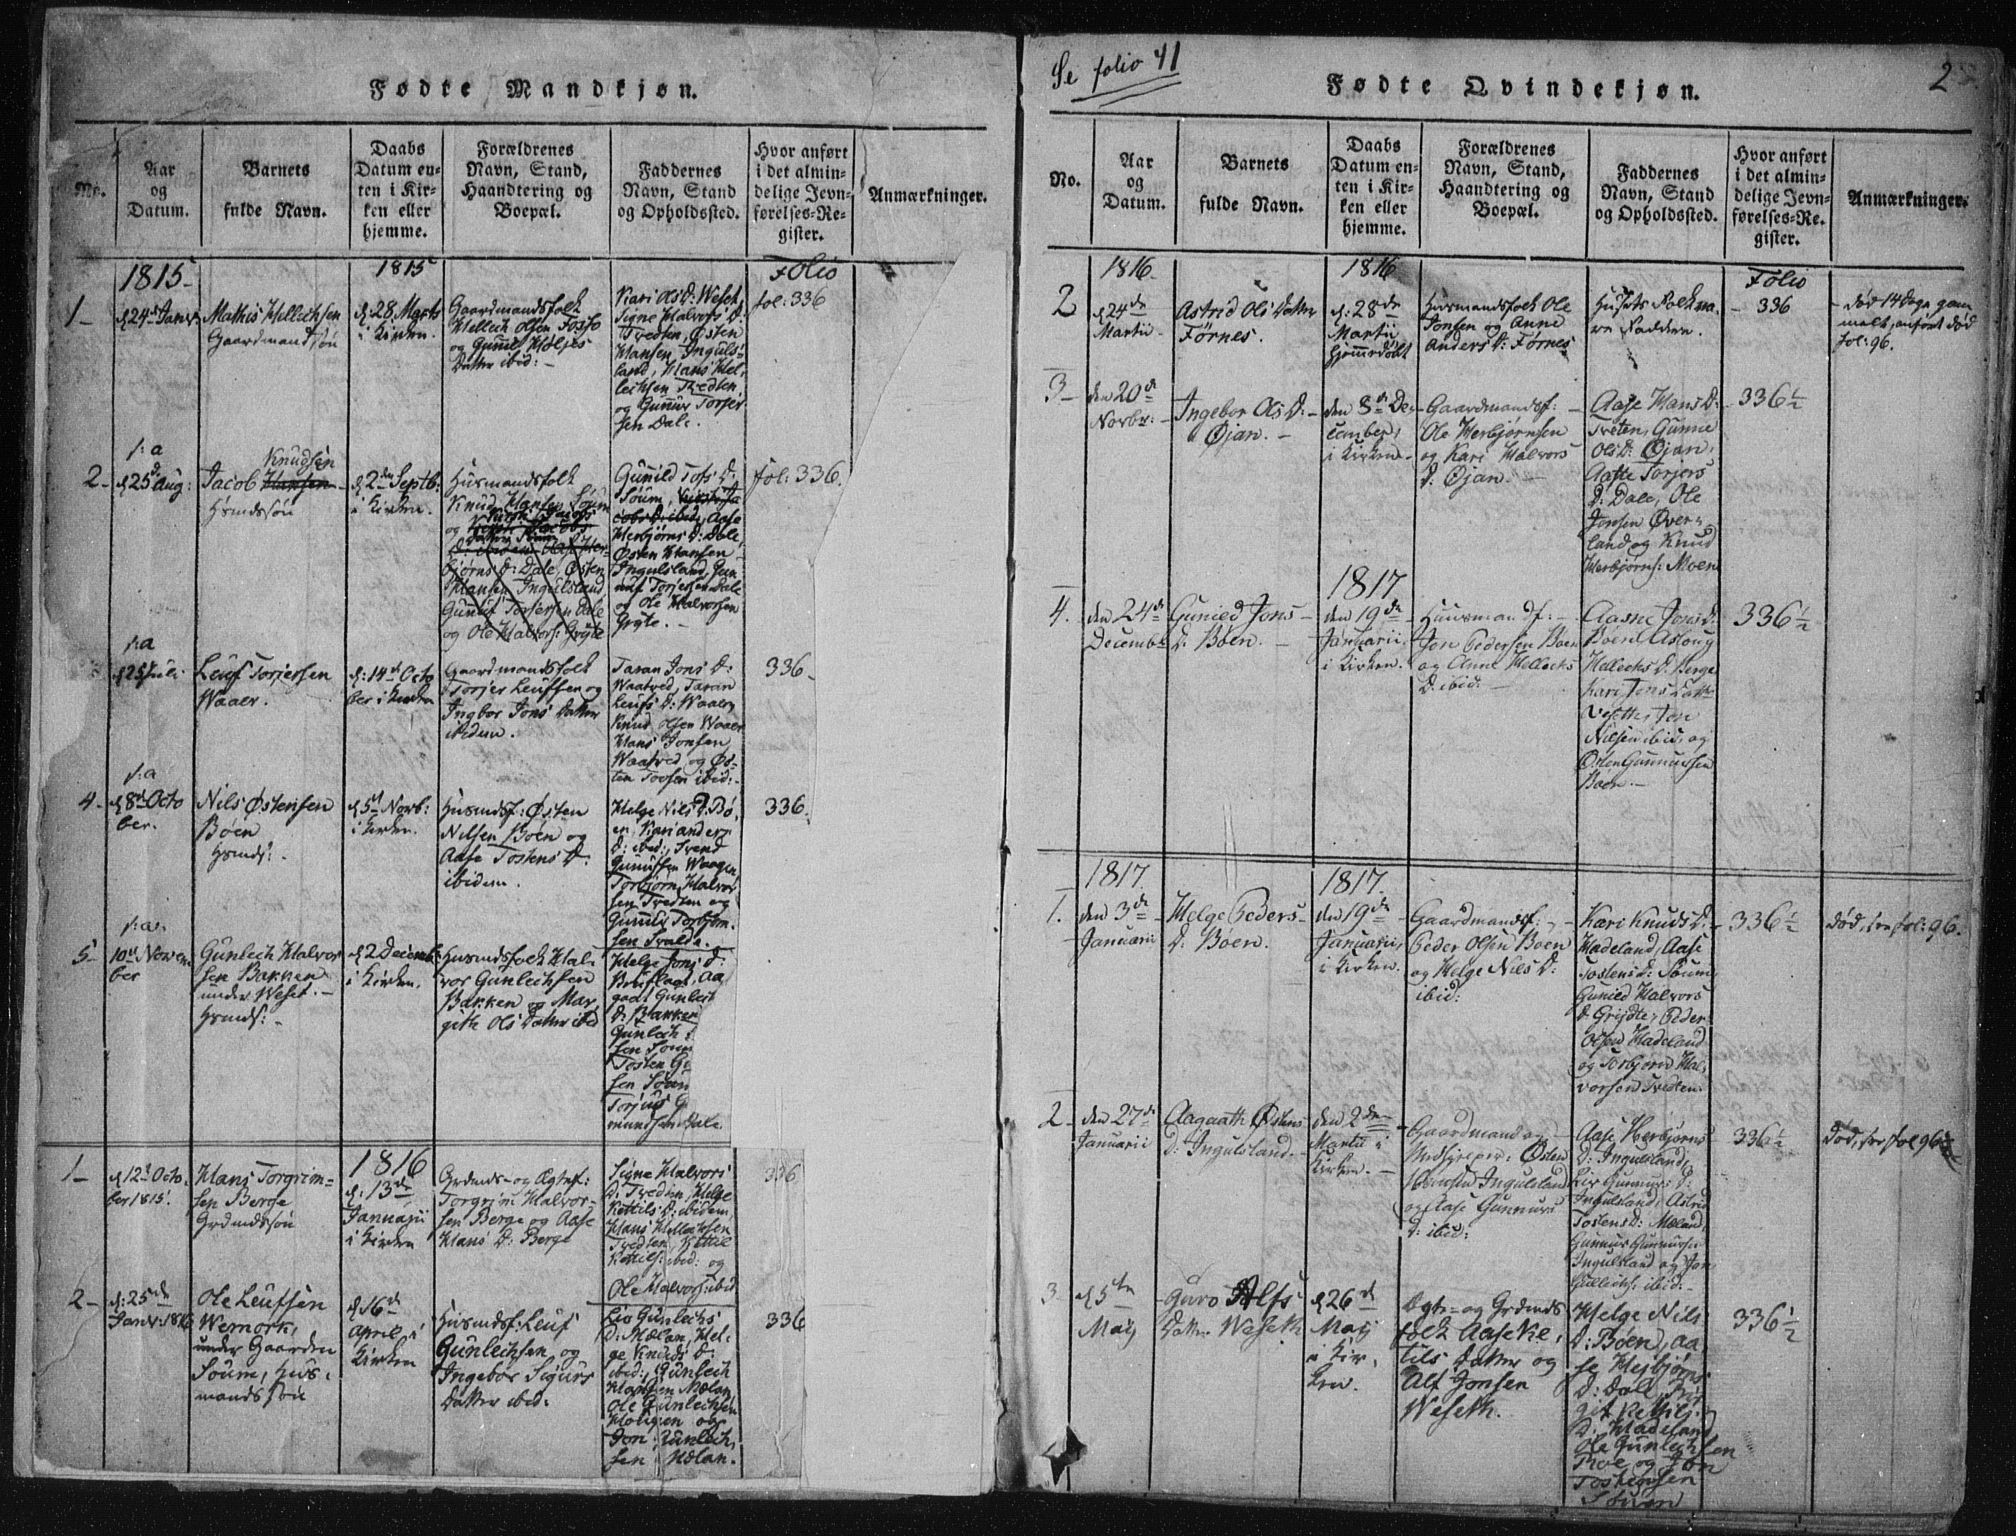 Fødte Mandkjøn.
No.
Aar
og
Datum.
Barnets
fulde Navn.
Daabs
Datum en-
ten i Kir-
ken eller
hjemme.
Forældrenes
Navn, Stand,
Haandtering og
Boepæl.
Faddernes
Navn, Stand
og Opholdssted.
Hvor anført
i det almin-
delige Jevn-
førelses-Re-
gister.
Anmærkninger.
1815-
1815
Folio
1-
d 24de Janv:
Mathis Hellechsen
Gaardmandssøn
d. 28 Marts
i Kirken.
Gaardmandsfolk
Hellech Olsen
og Gunild
Datter ibid: -
Kari Ols D: Weset,
Signe Halvors D:
Tvedten, Østen
Hansen, Inguls-
land, Hans Hel-
leichsen Tvedten
og Gunnuf Torjer-
sen Dale.
fol: 336
2-
d 25de Aug:
Knudsen
Jacob Hansen
Hsmdssøn
d 2den Septb.
i Kirken.
Husmandsfolk
Knud Hansen Søum
og
bjørns D: Dale, Østen
Hansen Ingulsland
Gunnuf Torjersen Dale
og Ole Halvors: Gryte
Gunild Tofs D:
Søum,
cobs D: ibid, Aase
Herbjørns D: Dale,
Østen Hansen
Ingulsland, Gun-
nuf Torjersen Dale
og Ole Halvorsen
Gryte. -
fol: 336.
d 25 Juli.
Leuf Torjersen
Waaer.
d: 14de Octo
ber i Kirken
Gaardmandsfolk
Torjer Leufsen og
Ingbor Jons Datter
ibidem.
Taran Jons D:
Waatved, Taran
Leufs D: Waaer,
Knud Olsen Waaer
Hans Jonsen
Waatved, og Øs-
ten Tovsen ibid: -
336
4-
d 8de Octo
ber.
Nils Østensen
Böen
Hsmds: -
d 5te Norb:
i Kirken.
Husmdsf: Østen
Nilsen Böen og
Aase Tostens D:
ibidem.
Helge Nils D: Bö
en, Kari anders
D: ibid:, Svend
Gunufsen Waagen
Torbjörn Halvor
sen Tvedten og
Gunnuf Torbjørn-
sen Tvalde.
336.
5-
10de Novem
ber
Gunleich Halvor
sen Bakken
under Weset. -
Hsmds: -
d 2 Decemb:
i Kirken.
Husmdsfolk Hal-
vor Gunleichsen
Bakken og Mar
gethe Ols Datter ibid
Helge Jons D:
Aa
gaat Gunleich
D: Bakken
Gunleich
sen Soum
Tosten G
sen Söum
Torjus G
mundsen Dale.
1-
d 12te Octo-
ber 1815.
Hans Torgrim-
sen Berge
Grdmdssøn
1816
d. 13de
Januarii
i Kirken
Grdmds- og Ægtef:
Torgrim Halvor-
sen Berge og Aase
Hans D: Berge
Signe Halvors
D: Tvedten, Helge
Kettils D: ibidem,
Hans Hellechsen
Tvedten Kettil
Kettils: ibid: og
Ole Halvors: ibid
336
2-
d: 25de
Janv: 1816
Ole Leufsen
Wemork,
under Gaarden
Soum, Hus-
mandssøn
d 16de
April i
Kirken
Husmdsf: Leuf
Gunleichsen og
Ingebor Sigurs
Datter ibid:
Liv Gunleichs
D: Mælan, Hel-
ge Knuds D:
ibid:, Gunleich
Mælan,
Ole Gunleichsen
og
Jon Gunleich-
sen Mælan.
336
Se folio 41
2
Fødte Qvindekjøn.
No.
Aar
og
Datum.
Barnets
fulde Navn.
Daabs
Datum en-
ten i Kir-
ken eller
hjemme.
Forældrenes
Navn, Stand,
Haandtering og
Boepæl.
Faddernes
Navn, Stand
og Opholdssted.
Hvor anført
i det almin-
delige Jevn-
førelses-Re-
gister.
Anmærkninger.
1816
1816
Folio
2
d 24de
Martii -
Astrid Ols Datter
Förnes.
d. 28de
Martii
hjemmedöbt
Husmandsfolk Ole
Jonsen og Anne
Anders D: Förnes
Husets Folk va-
re Faddere.
- 336
- död 14 Dage gam
mel, anfört död
fol: 96.
3-
den 20de
Novbr: -
Ingebor Ols D: -
Øjan. -
den 8de De-
cember,
i Kirken -
Gaardmandsf: -
Ole Herbjörnsen
og Kari Halvors
D: Øjan. -
Aase Hans D:
Tveten, Gunne
Ols D: Øjan,
Aase Torjers
D: Dale, Ole
Jonsen Över-
land og Knud
Herbjörns: Moen
336½
4.
den 24de
Decembr
Gunied Jons -
D: Böen. -
1817
den 19de
Januarii
i Kirken.
Huusmandsf: -
Jon Pedersen Böen
og Anne Hellechs
D: ibid: -
Aasne Jons D:
Böen Asloug
Hellechs D: Berge
Kari Jens Datt:
Jon
Nilsen ibid, og
Østen Gunnufsen
Boen. -
336½
1817
1817.
1.
den 3de
Januarii
Helge Peders-
D: Böen.
den 19de
Januarii,
i Kirken.
Gaardmandsf: -
Peder Olsen Boen
og Helge Nils D:
ibid:
Kari Knuds D:
Hadeland, Aase
Tostens D: Söum
Gunied Halvors
D: Grijdte, Peder
Olsen Hadeland
og Torbjörn Hal-
vorsen Tvedten
336½
död, see fol: 96.
2-
den 27de
Januarii
Aagaath Østens
D: Ingulsland -
den 2den
Martii i
Kirken. -
Gaardmand og
Medhjelper: Østen
Hansen Ingulsland
og Aase Gunnufs
D: ibid:
Aase Herbjørns
D: Ingulsland,
Liv Gunnufs D:
Ingulsland, Astrid
Tostens D: Mæland,
Gunnuf Gunnufsen
Ingulsland og Jon
Hellechs: ibid: -
336½
Död, see fol 96
3
d 5te
Maij
Guro Alfs
Datter Weseth
d 26de
Maij
i Kir-
ken.
Ægte- og Grdmds
folk Aase Ke-
tils Datter og
Alf Jonsen
Weseth.
Helge Nils
D: Böen, Aa
se Herbjørns
D: Dale,
git Kettils
D: Hadeland
Ole Gunleichsen
og Jon
Söum
336½